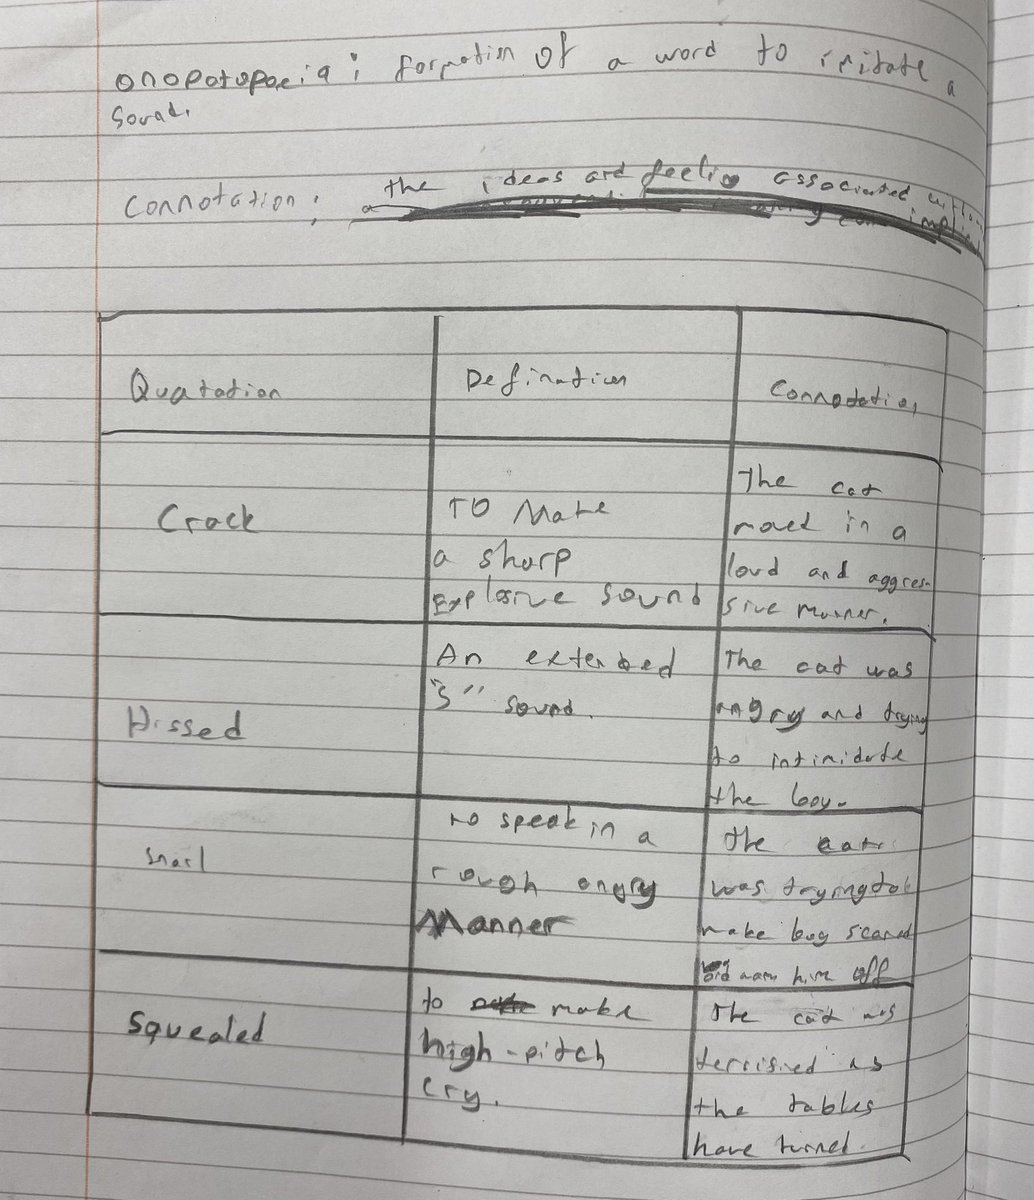 onopatopaeia: formation of a word to imitate a
sound.
Connotation: the ideas and feelin associated
Quatation
Defination
Connotation
Crack
TO Make
a sharp
Explosive sound
The cat
moved in a
loud and aggres-
sive manner.
Hissed
An extended
"S" sound.
The cat was
angry and trying
to intimidate
the boy.
Snarl
to speak in a
rough angry
Manner
The cat
was trying to
make boy scared
him off
Squealed
to make
high-pitch
cry.
The cat was
terrisified as
the tables
have turned.